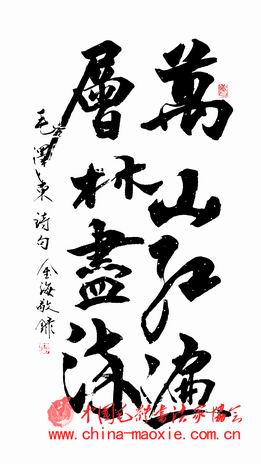 萬山红遍
層林盡染
毛澤東诗句 金海敬錄
中国毛体书法家協会
www.china-maoxie.com.cn